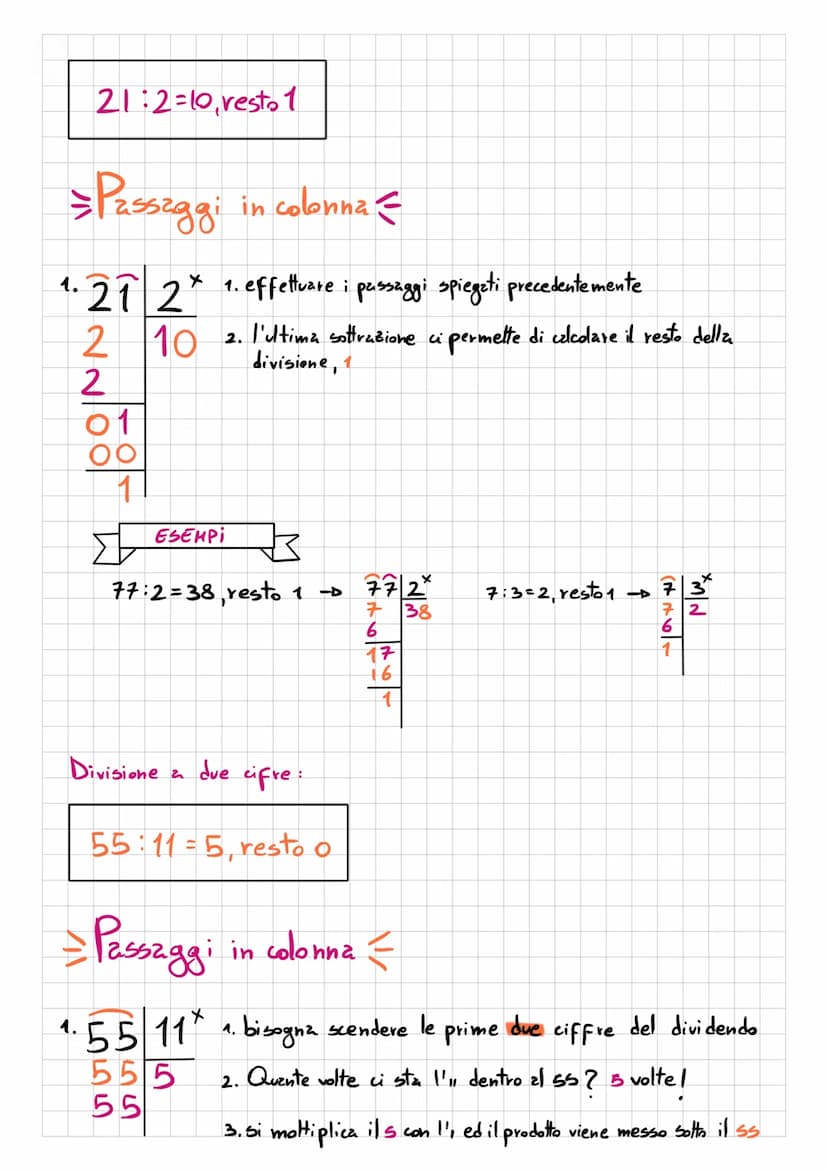 21:2=10, resto 1
Passaggi in colonna
1. 21 2 x 1. effettuare i passaggi spiegati precedentemente
2 10 2. l'ultima sottrazione ci permette di calcolare il resto della
divisione, 1
2
01
00
1
ESEMPi
77:2=38, resto 1 → 77 2 x 7:3=2, resto 1 → 7 3 x
7 38 7 2
6 6
17 1
16
1
Divisione a due cifre:
55:11=5, resto 0
Passaggi in colonna
1. 55 11 x 1. bisogna scendere le prime due ciffre del dividendo
55 5 2. Quante volte ci sta l'11 dentro al 55? 5 volte!
55
3. si moltiplica il 5 con l'1, ed il prodotto viene messo sotto il 55